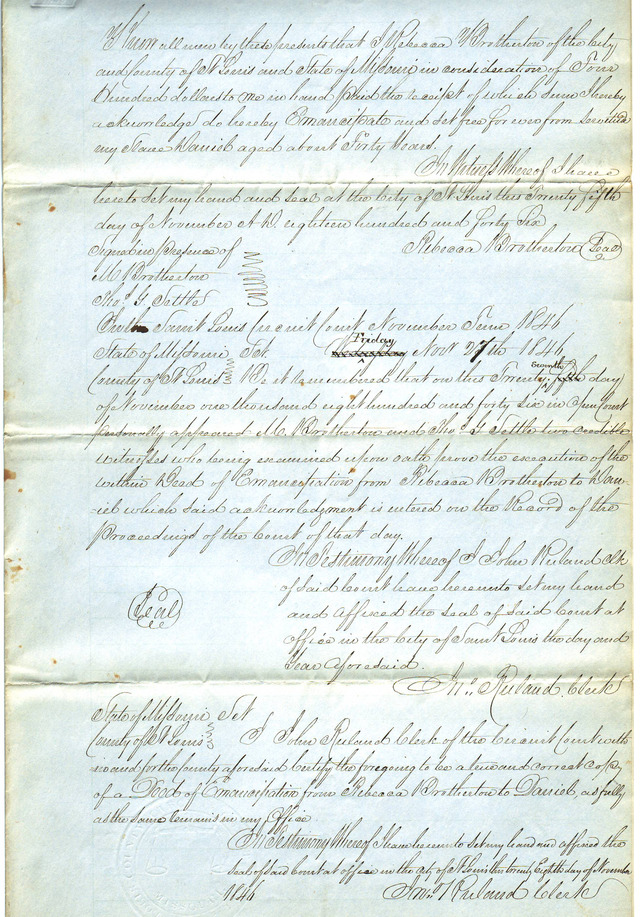 Know all men by these presents that I Rebecca Brotherton of the City
and County of St Louis and State of Missouri in consideration of Four
Hundred dollars to me in hand paid the receipt of which Sum I hereby
acknowledge do hereby Emancipate and set free for ever from servitude
my Slave Daniel aged about Forty Years.
In Witness Whereof I have
hereto set my hand and seal at the City of St Louis this Twenty fifth
day of November A.D. eighteen hundred and forty Six
Signed in presence of
Rebecca Brotherton Seal
M Brotherton
Tho. G. Settle
Saint Louis Circuit Court November Term 1846
Friday
State of Missouri Sct. Novr 27th 1846
Seventh
County of St Louis Be it remembered that on this Twenty day
of November one thousand eight hundred and forty six in Open Court
personally appeared M. Brotherton and Tho. G. Settle two credible
witnesses who being examined upon oath prove the execution of the
within Deed of Emancipation from Rebecca Brotherton to Dan-
iel which said acknowledgment is entered on the Record of the
Proceedings of the Court of that day.
In Testimony Whereof I John Ruland Clk
of Said Court have hereunto set my hand
Seal
and affixed the seal of Said Court at
office in the City of Saint Louis the day and
Year aforesaid.
Jno. Ruland Clerk
State of Missouri Sct
County of St Louis I John Ruland Clerk of the Circuit Court with
in and for the County aforesaid Certify the foregoing to be a true and correct copy
of a Deed of Emancipation from Rebecca Brotherton to Daniel, as fully
as the same remains in my Office
In Testimony Whereof I have hereunto set my hand and affixed the
seal of said Court at office in the City of St Louis this twenty Eighth day of November
1846 Jno. Ruland Clerk